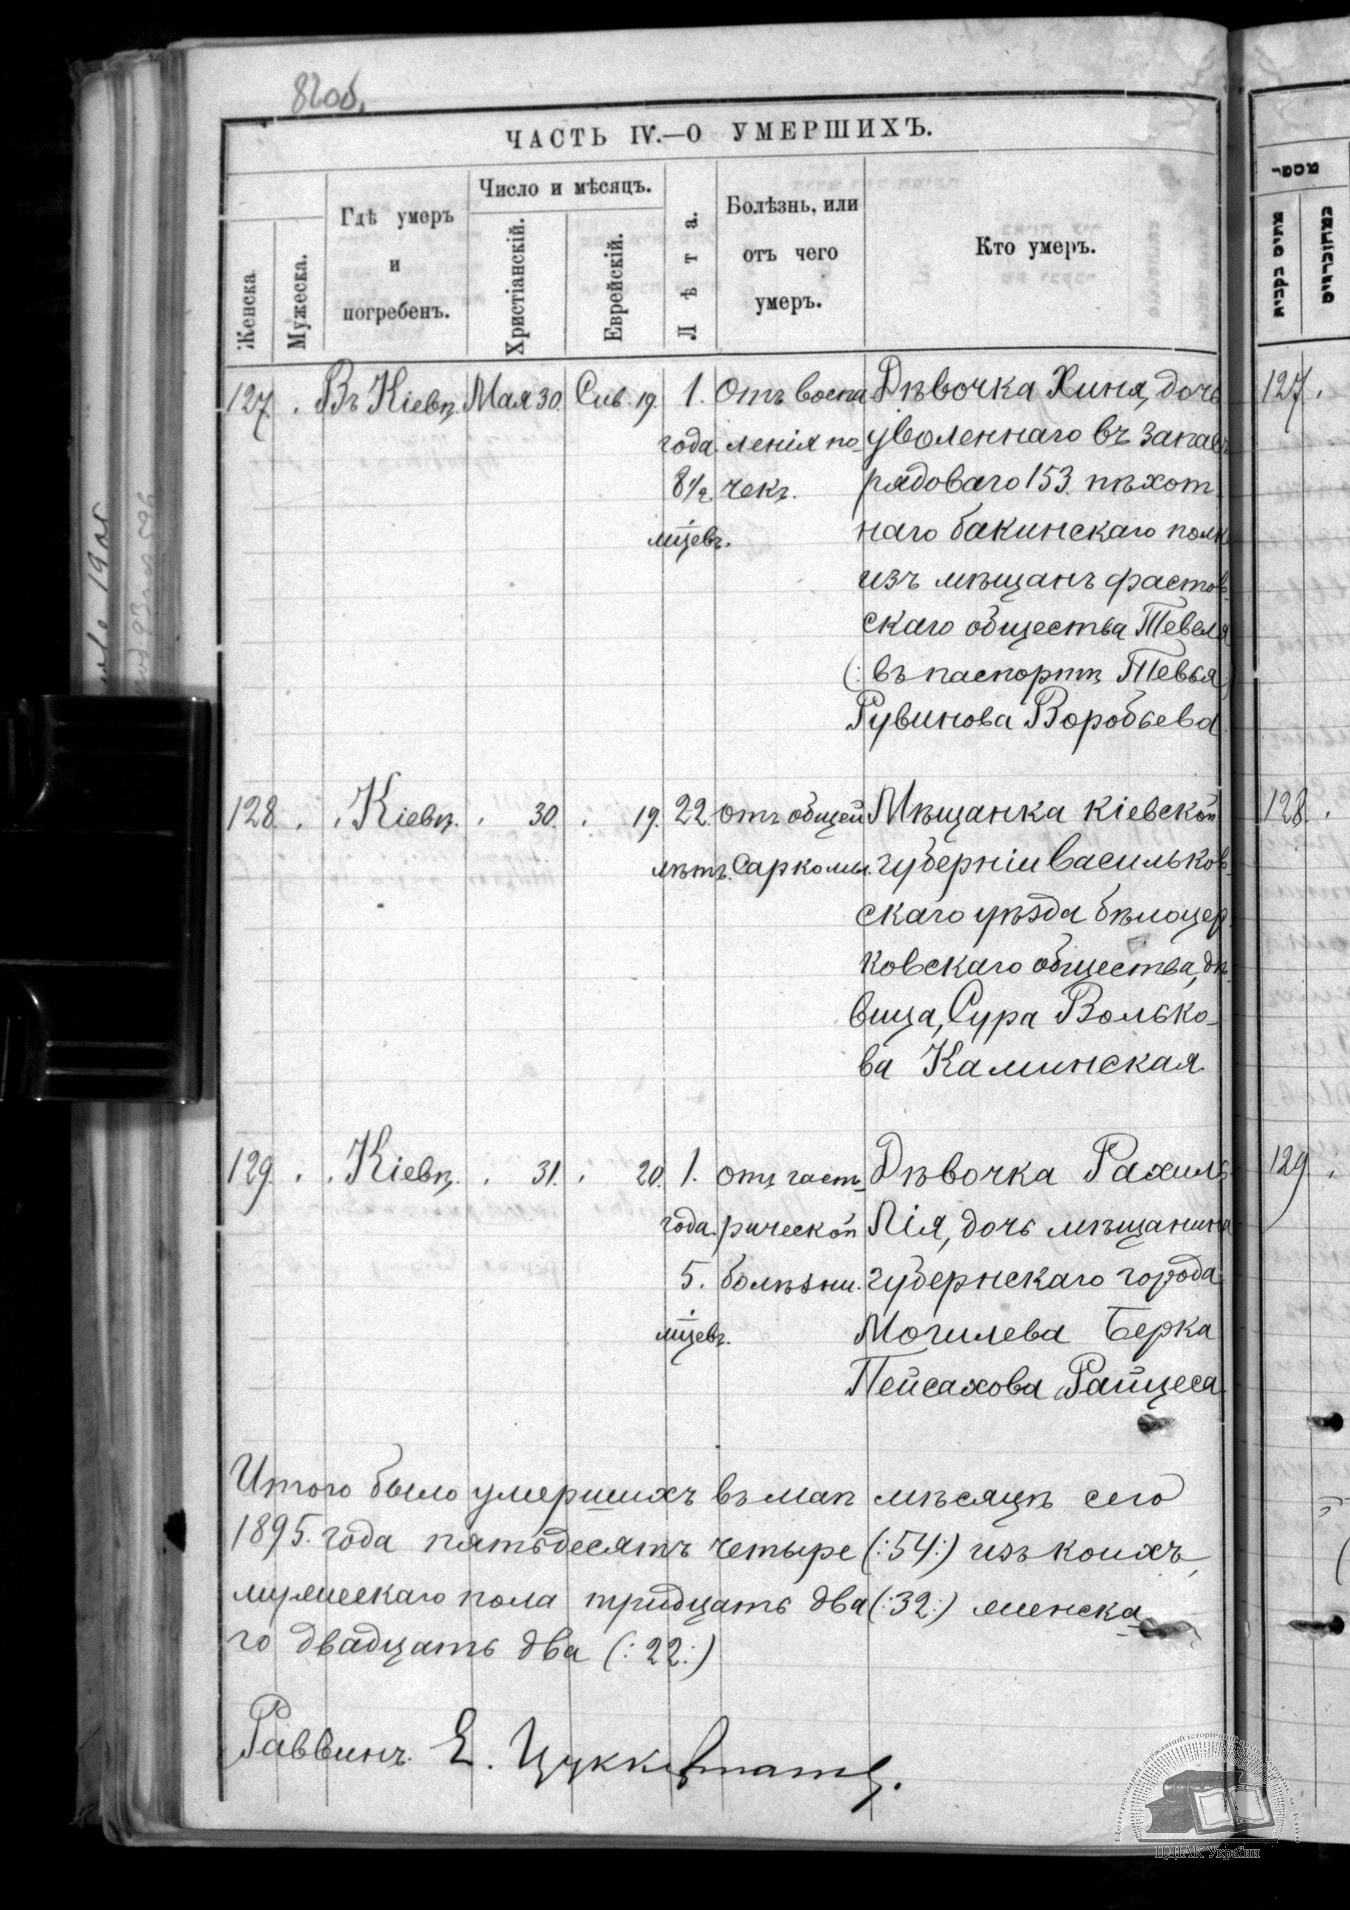 82об.
ЧАСТЬ IV.—О УМЕРШИХЪ.
Женска
Мужеска.
Гдѣ умеръ
и
погребенъ.
Число и мѣсяцъ.
Христіанскій.
Еврейскій.
Лѣта.
Болѣзнь, или
отъ чего
умеръ.
Кто умеръ.
127 . Въ Кіевѣ. Мая 30. Сив. 19. 1. Отъ воспа Дѣвочка Хиня, дочь
года ленія по- уволеннаго въ запасъ
8½ чекъ. рядоваго 153. пѣхот-
мѣцевъ. наго бакинскаго полка
изъ мѣщанъ фастов-
скаго общества Тевеля
(: въ паспортѣ Тевья :)
Рувинова Воробьева
128. . . Кіевѣ. . 30. . 19. 22. отъ общей Мѣщанка кіевской
лѣтъ. саркомы. губерніи Васильков-
скаго уѣзда бѣлоцер-
ковскаго общества, дѣ-
вица, Сура Волько-
ва Каминская
129. . . Кіевѣ. . 31. . 20. 1. отъ гаст- Дѣвочка Рахиль
года. рической Лія, дочь мѣщанина
5. болѣзни. губернскаго города
мѣцевъ. Могилева Берка
Пейсахова Райцеса
Итого было умершихъ въ маѣ мѣсяцѣ сего
1895. года пятьдесятъ четыре (:54:) изъ коихъ
мужескаго пола тридцать два (:32:) женска-
го двадцать два (:22:)
Раввинъ Е. Цуккерманъ.
127.
128.
129.
ЦДІАК України